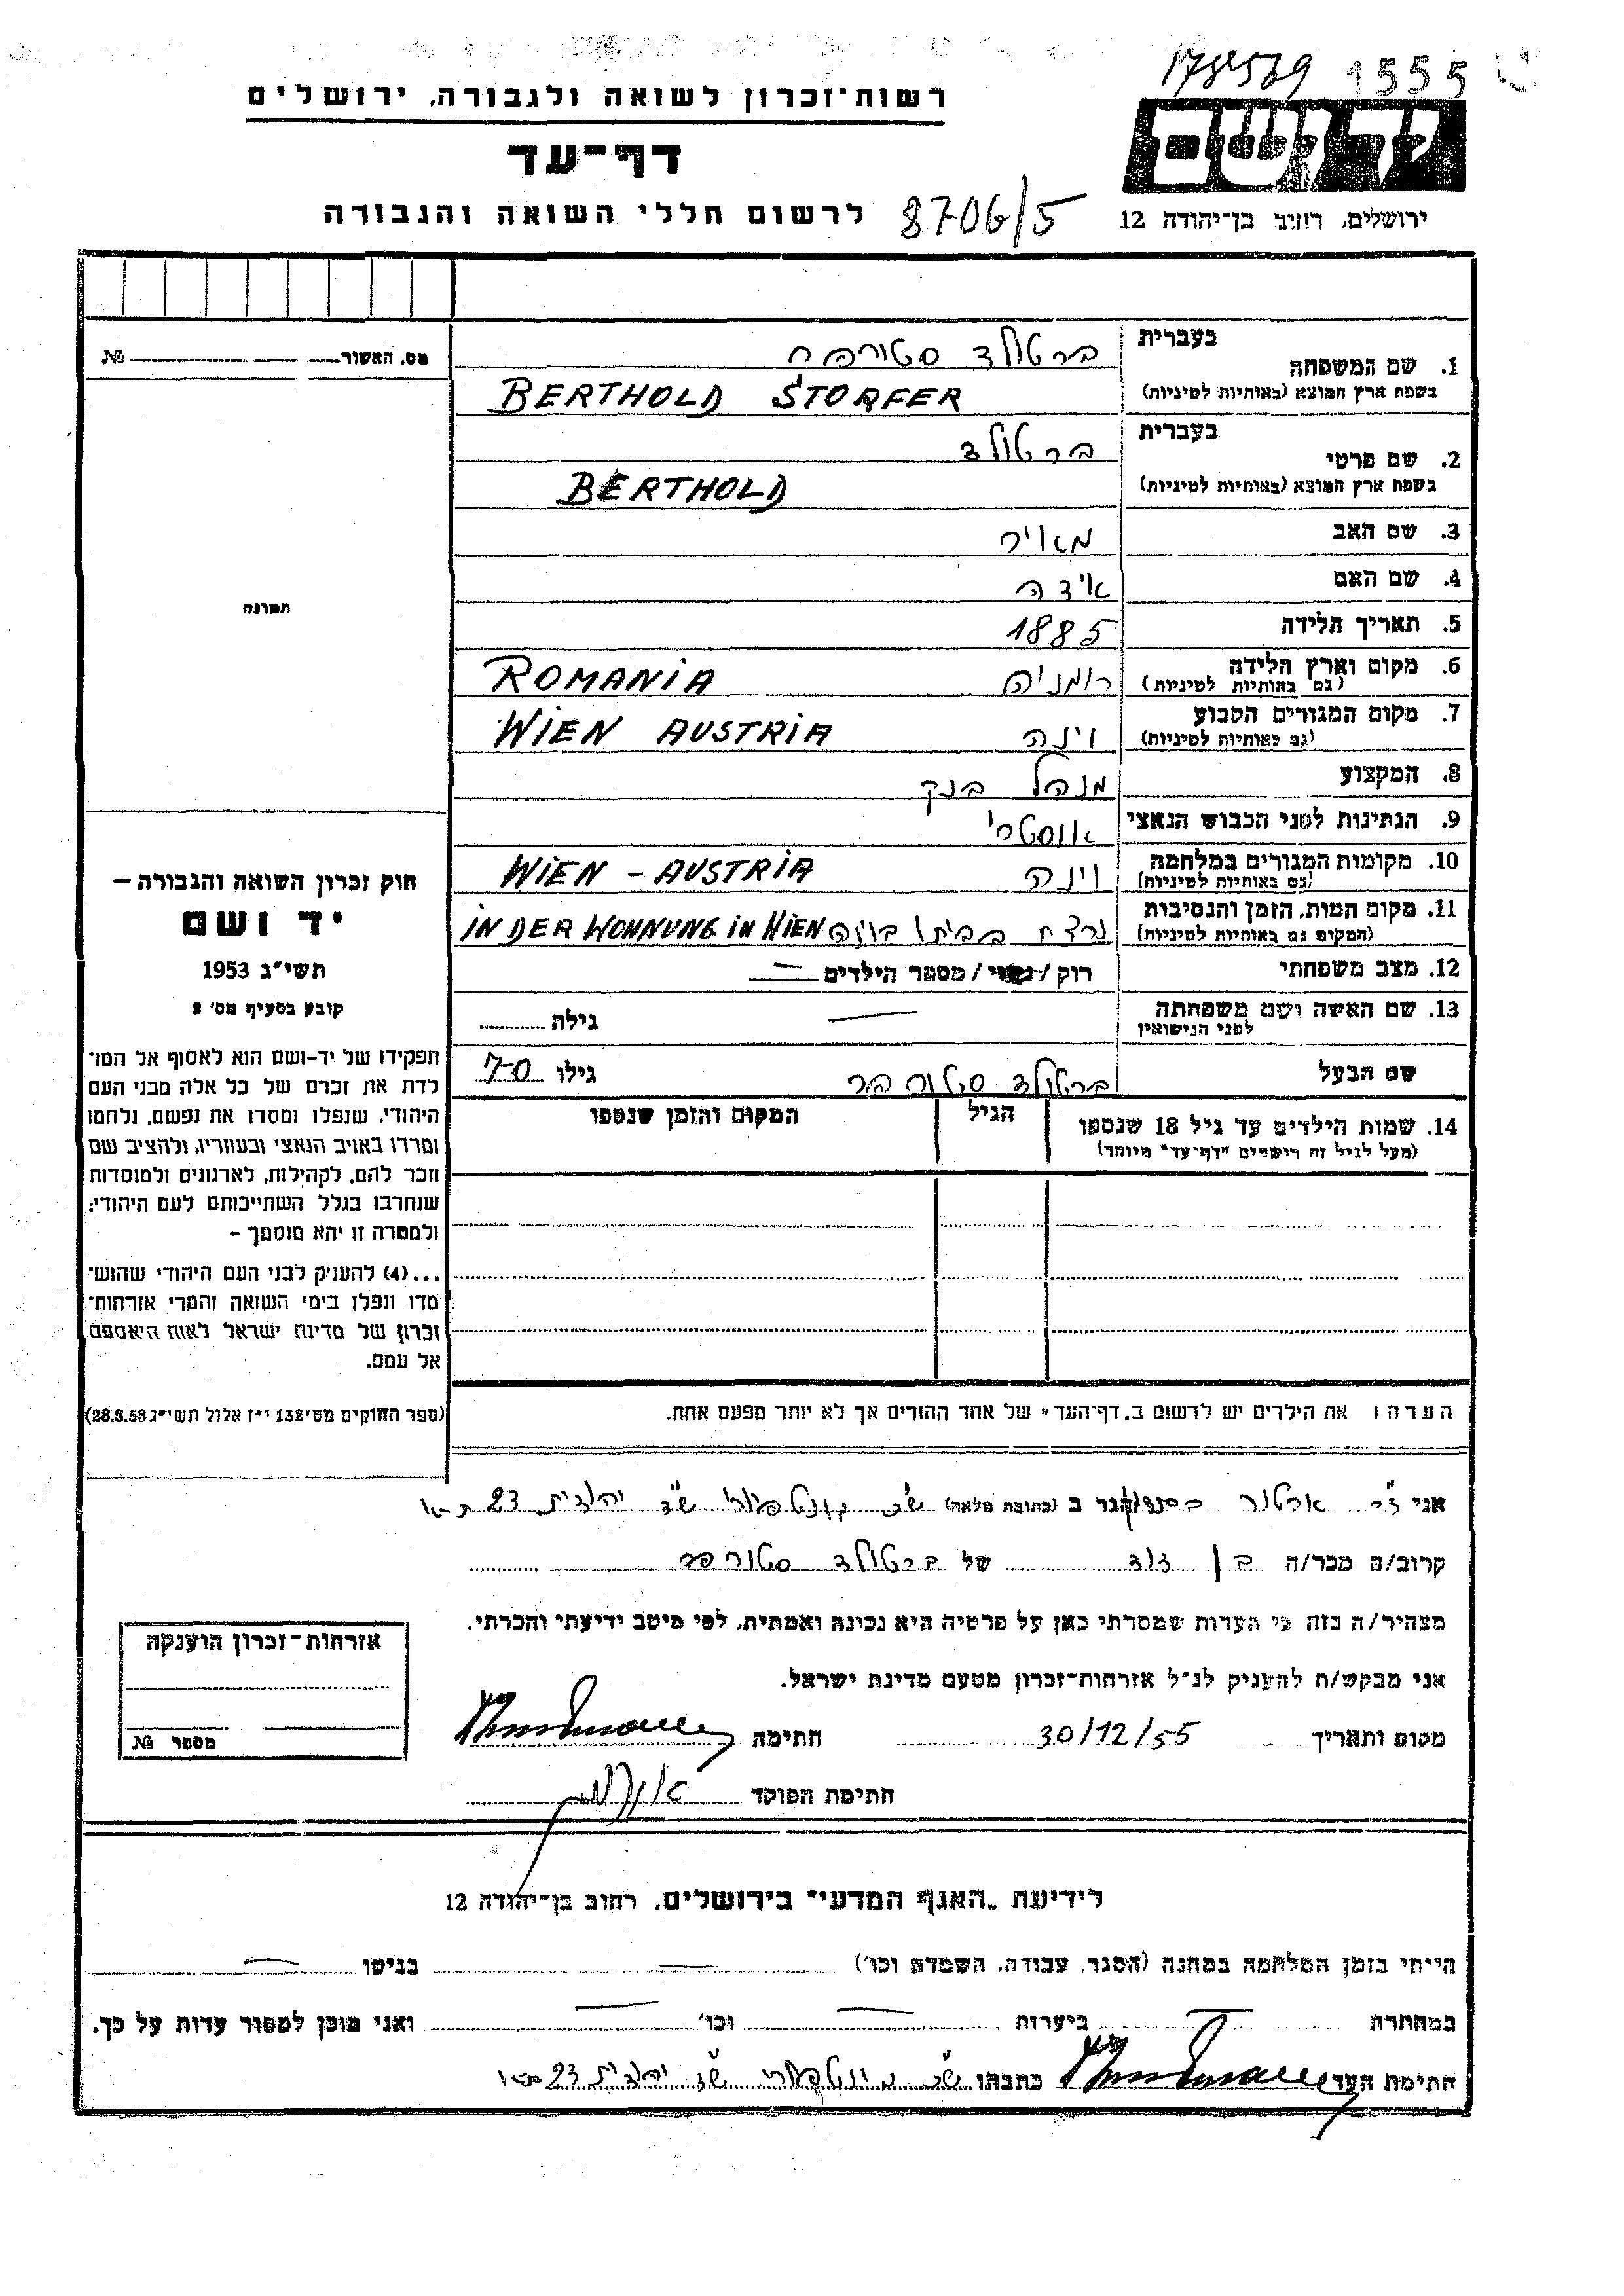 178539 1555
רשות־זכרון לשואה ולגבורה, ירושלים
יד ושם
דף־עד
ירושלים, רחוב בן־יהודה 12
לרשום חללי השואה והגבורה 8706/5
מס. האשור № 
בעברית ברטולד סטורפר
1. שם המשפחה
בשפת ארץ המוצא (באותיות לטיניות) BERTHOLD STORFER
בעברית ברטולד
2. שם פרטי
בשפת ארץ המוצא (באותיות לטיניות) BERTHOLD
3. שם האב מאיר
4. שם האם אידה
5. תאריך הלידה 1885
6. מקום וארץ הלידה רומניה ROMANIA
(גם באותיות לטיניות)
7. מקום המגורים הקבוע וינה WIEN AUSTRIA
(גם באותיות לטיניות)
8. המקצוע מנהל בנק
9. הנתינות לפני הכבוש הנאצי אוסטרי
10. מקומות המגורים במלחמה וינה WIEN - AUSTRIA
(גם באותיות לטיניות)
11. מקום המות, הזמן והנסיבות נרצח בביתו בוינה IN DER WOHNUNG IN WIEN
(המקום גם באותיות לטיניות)
12. מצב משפחתי רוק / נשוי / מספר הילדים —
13. שם האשה ושם משפחתה — גילה
לפני הנישואין
שם הבעל ברטולד סטורפר גילו 70
14. שמות הילדים עד גיל 18 שנספו הגיל המקום והזמן שנספו
(מעל לגיל זה רישמים "דף־עד" מיוחד)
הערה: את הילדים יש לרשום ב„דף־העד" של אחד ההורים אך לא יותר מפעם אחת.
תמונה
חוק זכרון השואה והגבורה –
יד ושם
תשי"ג 1953
קובע בסעיף מס' 2
תפקידו של יד-ושם הוא לאסוף אל המו־
לדת את זכרם של כל אלה מבני העם
היהודי, שנפלו ומסרו את נפשם, נלחמו
ומרדו באויב הנאצי ובעוזריו, ולהציב שם
וזכר להם, לקהילות, לארגונים ולמוסדות
שנחרבו בגלל השתייכותם לעם היהודי;
ולמטרה זו יהא מוסמך –
...(4) להעניק לבני העם היהודי שהוש־
מדו ונפלו בימי השואה והמרי אזרחות־
זכרון של מדינת ישראל לאות היאספם
אל עמם.
(ספר החוקים מס' 132 י"ז אלול תשי"ג 28.8.53)
אני ד"ר ארטור הגר ב (כתובת מלאה) שד יהודית 23 ת"א
קרוב/ה מכר/ה בן דוד של ברטולד סטורפר
מצהיר/ה בזה כי העדות שמסרתי כאן על פרטיה היא נכונה ואמתית, לפי מיטב ידיעתי והכרתי.
אני מבקש/ת להעניק לנ"ל אזרחות־זכרון מטעם מדינת ישראל.
מקום ותאריך 30/12/55 חתימה
חתימת הפוקד
אזרחות־זכרון הוענקה
מספר №
לידיעת „האגף המדעי" בירושלים, רחוב בן־יהודה 12
הייתי בזמן המלחמה במחנה (הסגר, עבודה, השמדה וכו') — בגיטו —
במחתרת — ביערות — וכו' — ואני מוכן למסור עדות על כך.
חתימת העד כתבתו שד יהודית 23 ת"א